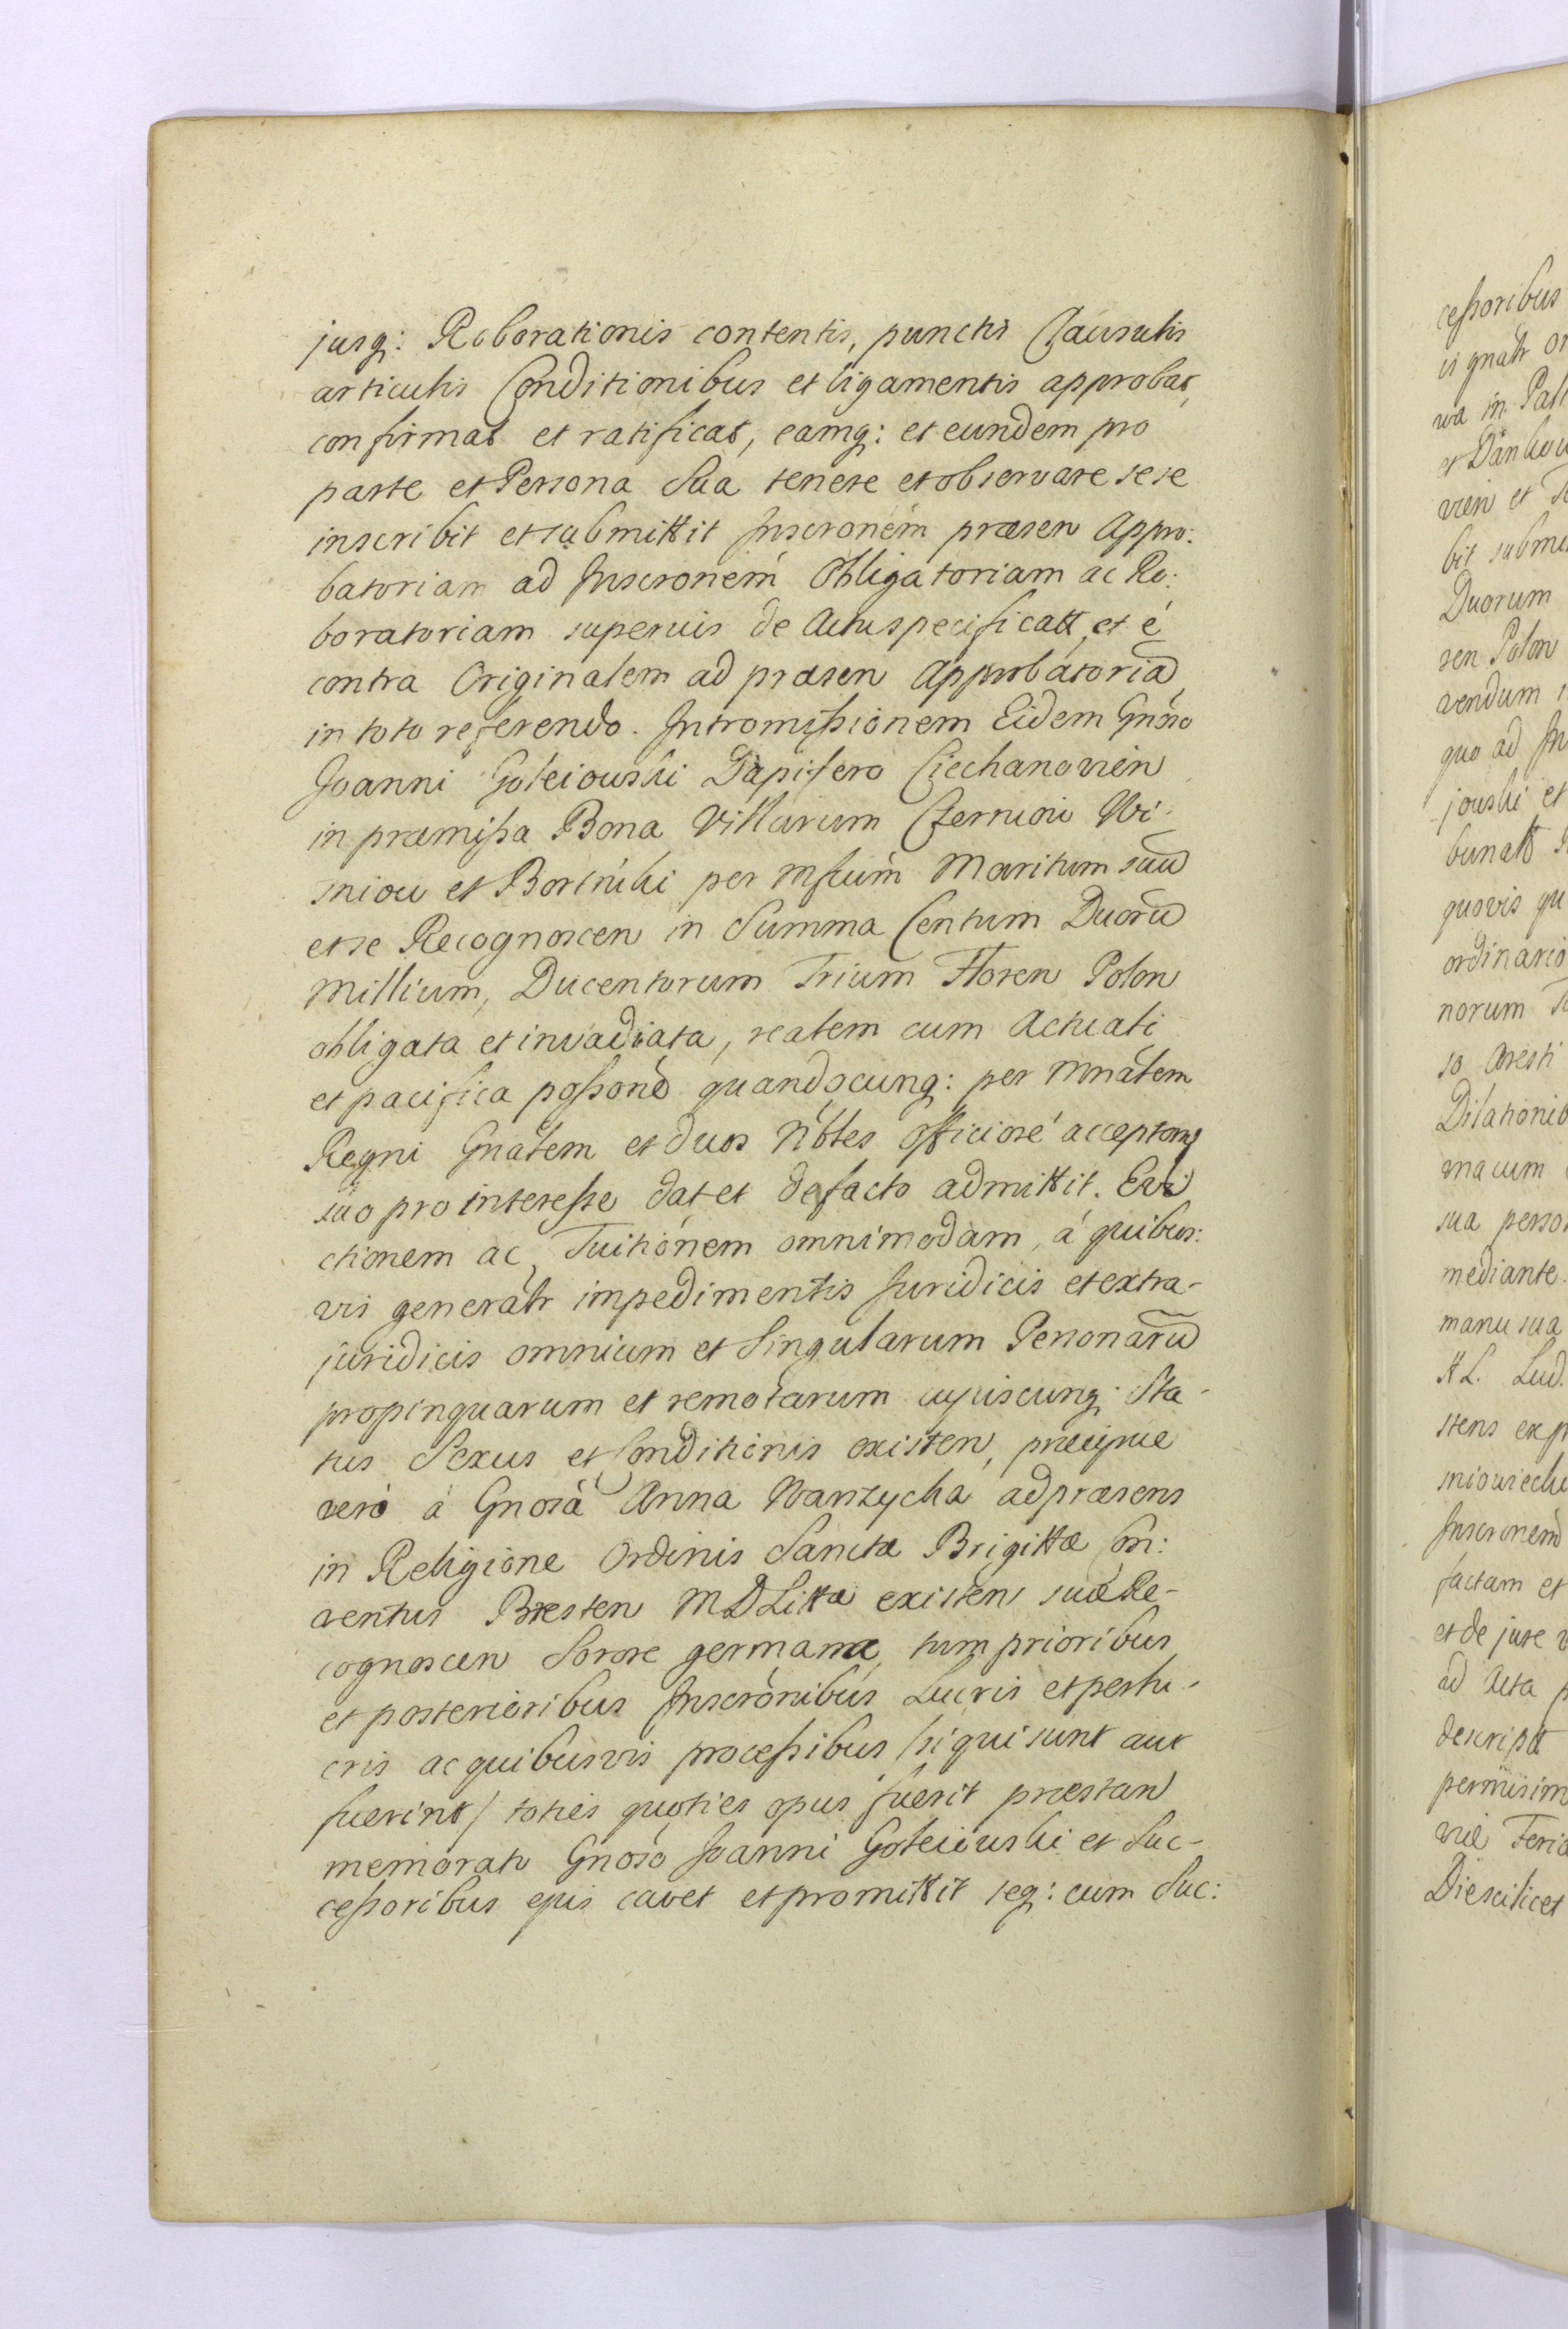 jusq: Roborationis contentis, punctis Clausulis
articulis Conditionibus et ligamentis approbat,
confirmat et ratificat, eamq: et eundem pro
parte et Persona Sua tenere et observare sese
inscribit et submittit Inscronem præsen Appro:
batoriam ad Inscronem Obligatoriam ac Ro:
boratoriam superius de Actu specificatt et é
contra Originalem ad præsen Approbatoria
in toto referendo. Intromissionem Eidem Gnoso
Joanni Goleiowski Dapifero Ciechanovien
in præmissa Bona Villarum Czerniow Wi-
sniow et Bortniki per Mfcum Maritum suu
et se Recognoscen in Summa Centum Duoru
Millium, Ducentorum Trium Floren Polon
obligata et invadiata, realem cum Actuali
et pacifica possone quandocunq: per Mnalem
Regni Gnalem et duos Nbles officiose acceptom
suo pro interesse dat et de facto admittit. Evi
ctionem ac Tuitionem omnimodam, á quibus:
vis generalr impedimentis Juridicis et extra-
juridicis omnium et Singularum Personaru
propinquarum et remotarum cujuscunq: Sta-
tus Sexus et Conditionis existen, præcipue
vero á Gnosa Anna Wanzycha ad præsens
in Religione Ordinis Sanctæ Brigittæ Con:
ventus Bresten M D Litta existen sua Re-
cognoscen Sorore germana, tum prioribus
et posterioribus Inscronibus Lucris et perlu-
cris ac quibusvis processibus /si qui sunt aut
fuerint/ toties quoties opus fuerit præstan
memorato Gnoso Joanni Goleiowski et Suc-
cessoribus ejus cavet et promittit seq: cum Suc:
cessoribus
et
Duorum
sen Polon
vendum
quo ad
jowski et
quovis
ordinario
norum
Dilationi
sua
mediante
manu sua
factam et
et de jure
ad Acta
Die scilicet